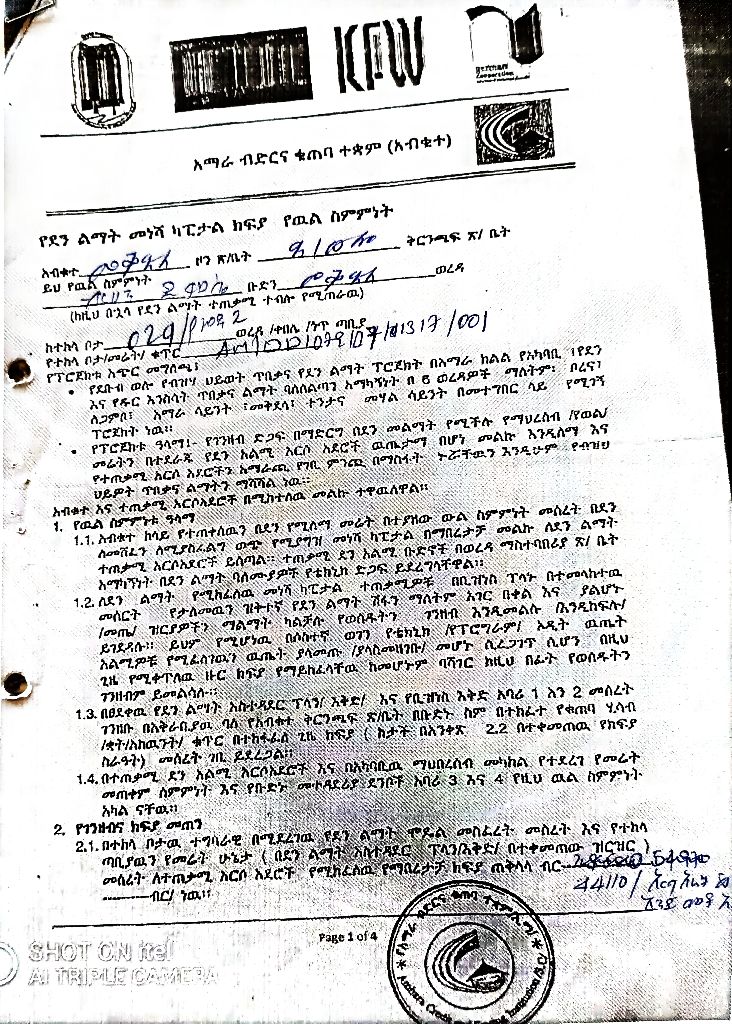 KFW
german
cooperation
አማራ ብድርና ቁጠባ ተቋም (አብቁተ)
የደን ልማት መነሻ ካፒታል ክፍያ የዉል ስምምነት
አብቁተ መቅደላ ዞን ጽ/ቤት ቅርንጫፍ ጽ/ ቤት
ይህ የዉል ስምምነት ቡድን መቅደላ ወረዳ
(ከዚህ በኋላ የደን ልማት ተጠቃሚ ተብሎ የሚጠራዉ)
ከተከላ ቦታ 029 ወረዳ /ቀበሌ /ንዑስ ጣቢያ
የተከላ ቦታ/መሬት/ ቁጥር
የፕሮጀክት አጭር መግለጫ፤
• የደቡብ ወሎ የብዝሃ ህይወት ጥበቃና የደን ልማት ፕሮጀክት በአማራ ክልል የአካባቢ የደን
እና የዱር እንስሳት ጥበቃና ልማት ባለስልጣን አማካኝነት በ 6 ወረዳዎች ማለትም፡ ቦረና፣
ለጋምቦ፣ አማራ ሳይንት ፣መቅደላ፣ ተንታና መሃል ሳይንት በመተግበር ላይ የሚገኝ
ፕሮጀክት ነዉ።
• የፕሮጀክቱ ዓላማ፤- የገንዘብ ድጋፍ በማድርግ በደን መልማት የሚችሉ የማህረሰብ /የወል/
መሬትን በተደራጁ የደን አልሚ አርሶ አደሮች ዉጤታማ በሆነ መልኩ እንዲለማ እና
የተጠቃሚ አርሶ አደሮችን አማራጪ የገቢ ምንጪ በማስፋት ኑሯቸዉን እንዲሁም የብዝሀ
ህይዎት ጥበቃና ልማትን ማሻሻል ነዉ።
አብቁተ እና ተጠቃሚ አርሶአደሮች በሚከተለዉ መልኩ ተዋዉለዋል።
1. የዉል ስምምነቱ ዓላማ
1.1. አብቁተ ከላይ የተጠቀሰዉን በደን የሚለማ መሬት በተያዘው ውል ስምምነት መሰረት በደን
ለመሸፈን ለሚያስፈልግ ወጭ የሚያግዝ መነሻ ካፒታል በማበረታቻ መልኩ ለደን ልማት
ተጠቃሚ አርሶአደሮች ይሰጣል። ተጠቃሚ ደን አልሚ ቡድኖች በወረዳ ማስተባበሪያ ጽ/ ቤት
አማካኝነት በደን ልማት ባለሙያዎች የቴክኒክ ድጋፍ ይደረግላቸዋል።
1.2. ለደን ልማት የሚከፈለዉ መነሻ ካፒታል ተጠቃሚዎቹ በቢዝነስ ፕላኑ በተመላከተዉ
መሰርት የታለመዉን ዝቅተኛ የደን ልማት ሽፋን ማለትም አገር በቀል እና ያልሆኑ
/መጤ/ ዝርያዎችን ማልማት ካልቻሉ የወሰዱትን ገንዘብ እንዲመልሱ /እንዲከፍሉ/
ይገደዳሉ። ይህም የሚሆነዉ በሶስተኛ ወገን የቴክኒክ /የፕሮግራም/ ኦዲት ዉጤት
አልሚዎቹ የሚፈለገዉን ዉጤት ያላመጡ /ያላስመዘገቡ/ መሆኑ ሲረጋገጥ ሲሆን በዚህ
ጊዜ የሚቀጥለዉ ዙር ክፍያ የማይከፈላቸዉ ከመሆኑም ባሻገር ከዚህ በፊት የወሰዱትን
ገንዘብም ይመልሳሉ።
1.3. በፀደቀዉ የደን ልማት አስተዳደር ፕላን/ እቅድ/ እና የቢዝነስ እቅድ አባሪ 1 እን 2 መሰረት
ገንዘቡ በአቅራቢያዉ ባለ የአብቁተ ቅርንጫፍ ጽ/ቤት በቡድኑ ስም በተከፈተ የቁጠባ ሂሳብ
/ቋት/አከዉንት/ ቁጥር በተከፋፈለ ጊዜ ክፍያ ( ስታች በአንቀጽ 2.2 በተቀመጠዉ የክፍያ
ስራዓት) መሰረት ገቢ ይደረጋል።
1.4. በተጠቃሚ ደን አልሚ አርሶአደሮች እና በአካባቢዉ ማህበረሰብ መካከል የተደረገ የመሬት
መጠቀም ስምምነት እና የቡድኑ መተዳደሪያ ደንቦች አባሪ 3 እና 4 የዚህ ዉል ስምምነት
አካል ናቸዉ።
2. የገንዘብና ክፍያ መጠን
2.1. በተከላ ቦታዉ ተግባራዊ በሚደረገዉ የደን ልማት ሞዴል መስፈረት መሰረት እና የተከላ
ጣቢያዉን የመሬት ሁኔታ ( በደን ልማት አስተዳደር ፕላን/እቅድ/ በተቀመጠው ዝርዝር )
መሰረት ለተጠቃሚ አርሶ አደሮች የሚከፈለዉ የማበረታቻ ክፍያ ጠቅላላ ብር
44110/
ብር/ ነዉ።
Page 1 of 4
SHOT ON itel
AI TRIPLE CAMERA